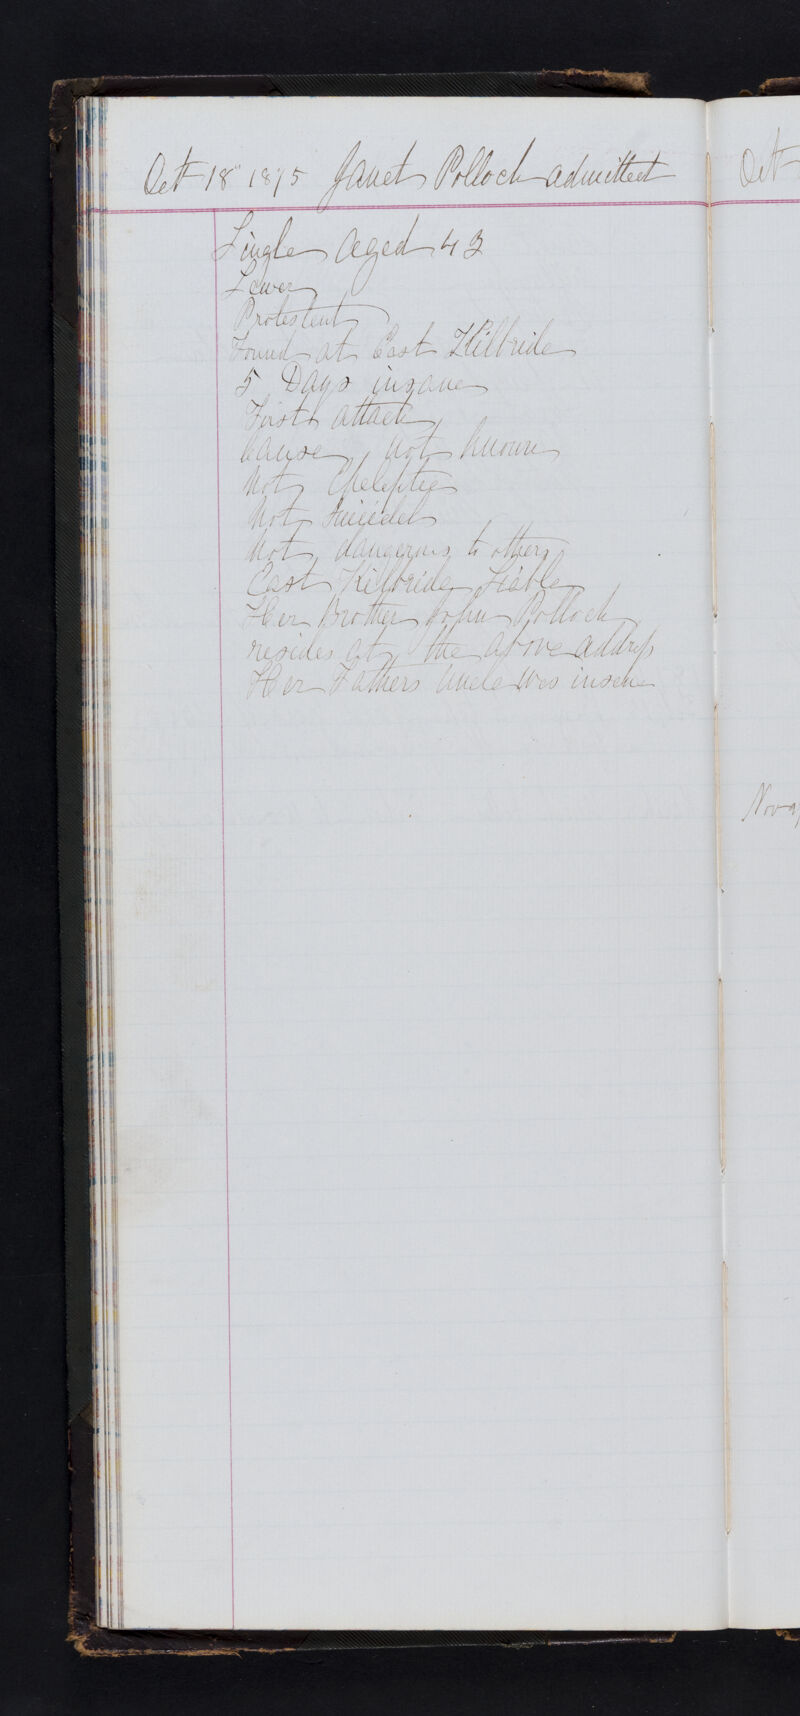 Oct 18 1875 Janet Pollock admitted
Single Aged 43
Sewer
Protestant
Found at East Kilbride
5 Days insane
First attack
Cause not known
Not Epeleptic
Not Suicidal
Not dangerous to others
East Kilbride Liable
Her Brother John Pollock
resides at the above address
Her Fathers Uncle was insane
Oct
Nov